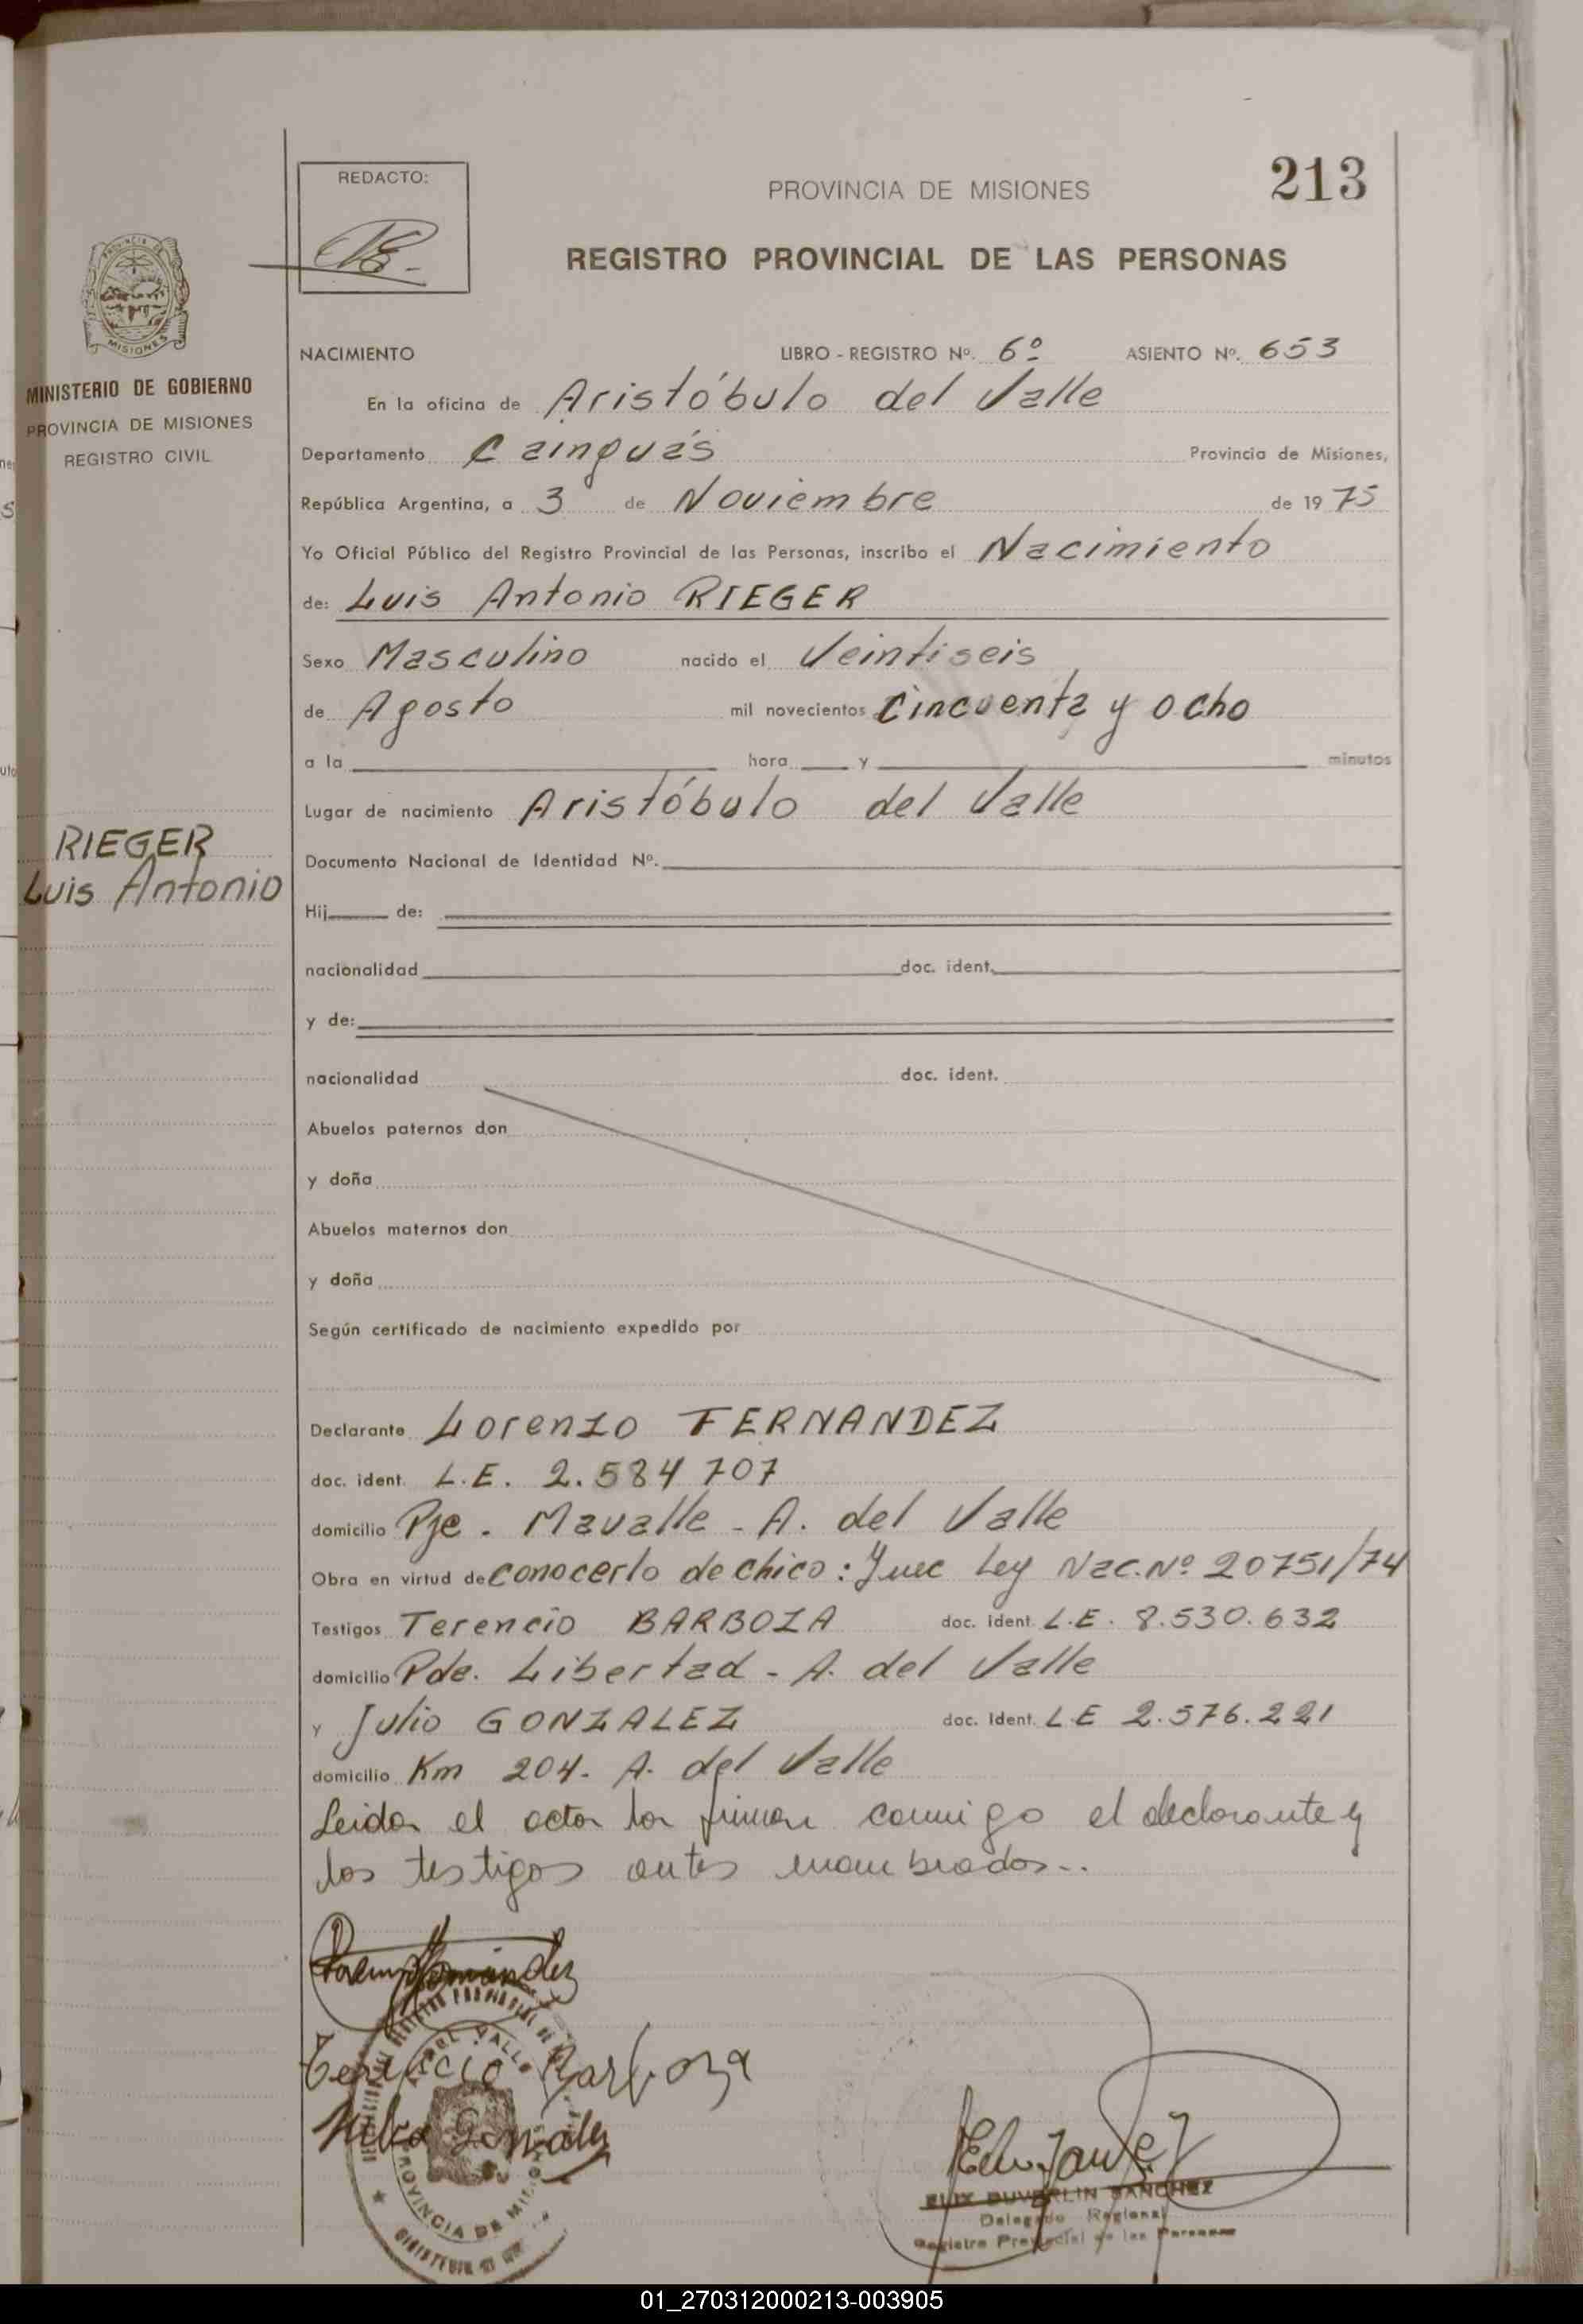 REDACTO:
PROVINCIA DE MISIONES
213
REGISTRO PROVINCIAL DE LAS PERSONAS
PROVINCIA DE
MISIONES
MINISTERIO DE GOBIERNO
PROVINCIA DE MISIONES
REGISTRO CIVIL
NACIMIENTO LIBRO - REGISTRO Nº. 6º ASIENTO Nº. 653
En la oficina de Aristóbulo del Valle
Departamento Cainguás Provincia de Misiones,
República Argentina, a 3 de Noviembre de 1975
Yo Oficial Público del Registro Provincial de las Personas, inscribo el Nacimiento
de: Luis Antonio RIEGER
Sexo Masculino nacido el Veintiseis
de Agosto mil novecientos Cincuenta y ocho
a la hora y minutos
Lugar de nacimiento Aristóbulo del Valle
RIEGER
Luis Antonio
Documento Nacional de Identidad Nº.
Hij de:
nacionalidad doc. ident.
y de:
nacionalidad doc. ident.
Abuelos paternos don
y doña
Abuelos maternos don
y doña
Según certificado de nacimiento expedido por
Declarante Lorenzo FERNANDEZ
doc. ident. L.E. 2.584 707
domicilio Pje. Mavalle - A. del Valle
Obra en virtud de conocerlo de chico: Juec Ley Nac. Nº 20751/74
Testigos Terencio BARBOZA doc. ident. L.E. 8.530.632
domicilio Pde. Libertad - A. del Valle
y Julio GONZALEZ doc. Ident. L.E 2.576.221
domicilio Km 204. A. del Valle
Leida el acta la firman conmigo el declarante y
los testigos antes nombrados..
Fernandez
Terencio Barboza
Gonzalez
DEL VALLE
PROVINCIA DE MISIONES
ELIX DUVERLIN SANCHEZ
Delegado Regional
Registro Provincial de las Personas
01_270312000213-003905